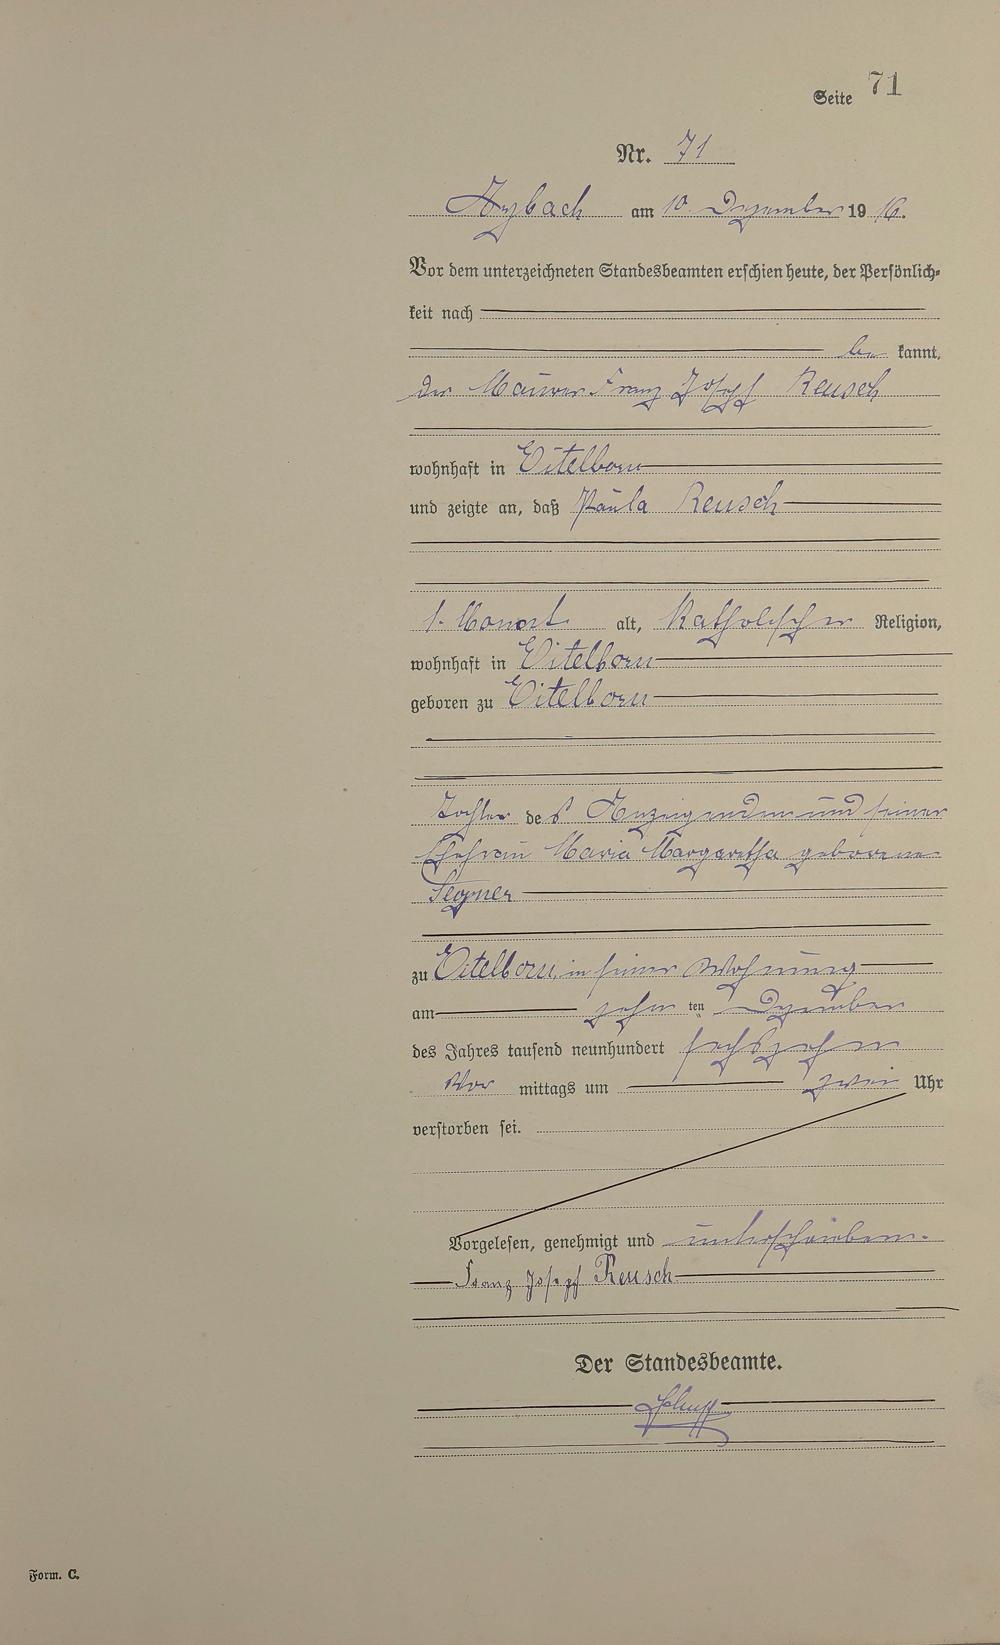 Seite 71
Nr. 71
Arzbach am 10. Dezember 1916.
Vor dem unterzeichneten Standesbeamten erschien heute, der Persönlich-
keit nach
be kannt,
der Maurer Franz Josef Reusch
wohnhaft in Eitelborn
und zeigte an, daß Paula Reusch
1. Monat alt, Katholischer Religion,
wohnhaft in Eitelborn
geboren zu Eitelborn
Tochter des Anzeigenden und seiner
Ehefrau Maria Margaretha geborene
zu Eitelborn, in seiner Wohnung
am zehn ten Dezember
des Jahres tausend neunhundert sechszehn
Vor mittags um zwei Uhr
verstorben sei.
Vorgelesen, genehmigt und unterschrieben.
Franz Josepf Reusch
Der Standesbeamte.
Form. C.